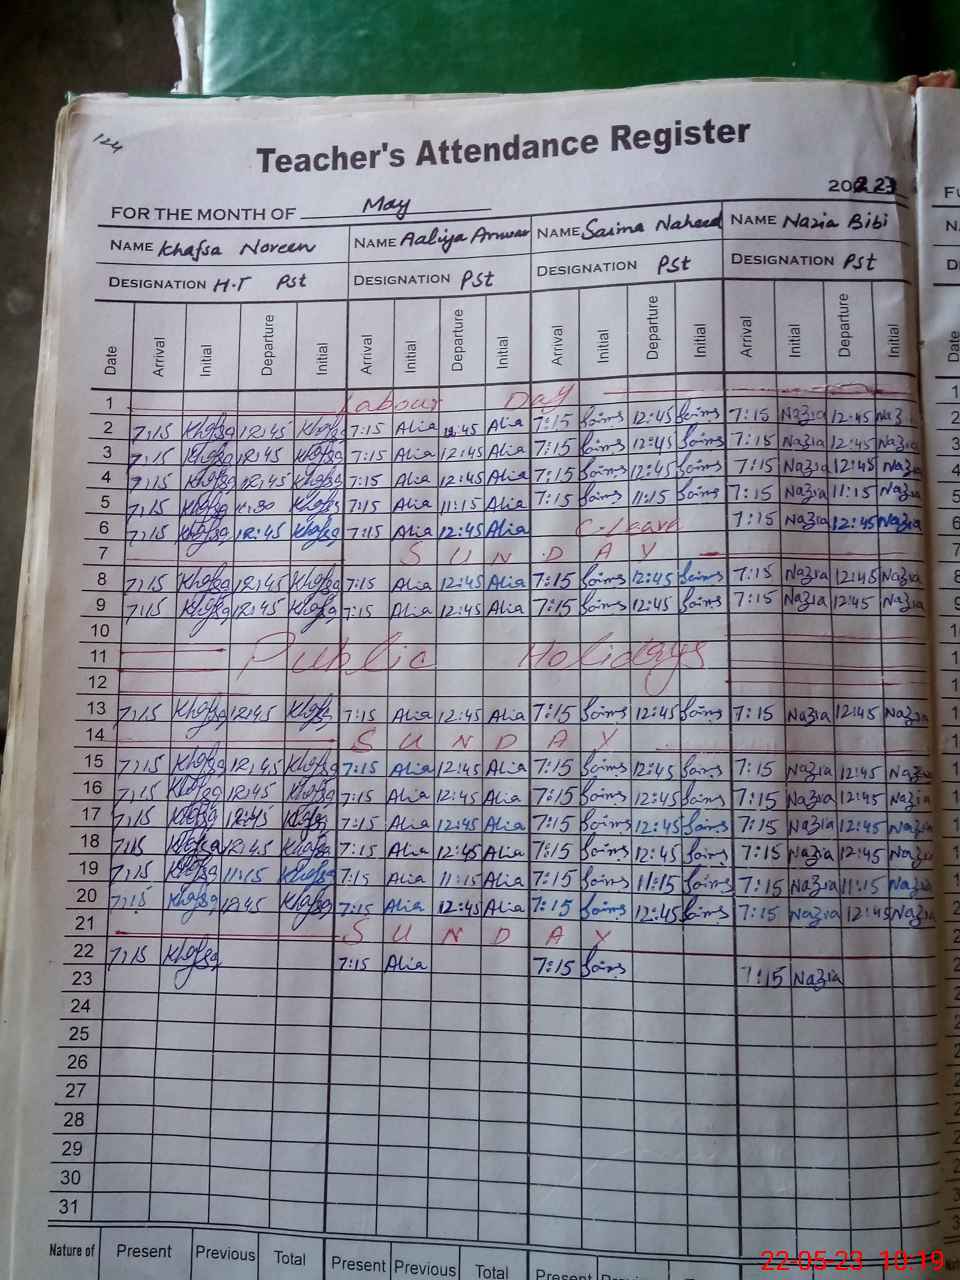 124
Teacher's Attendance Register
2023
FOR THE MONTH OF May
NAME Khafsa Noreen NAME Aaliya Anwar NAME Saima Naheed NAME Nazia Bibi
DESIGNATION H.T Pst DESIGNATION Pst DESIGNATION Pst DESIGNATION Pst
Date Arrival Initial Departure Initial Arrival Initial Departure Initial Arrival Initial Departure Initial Arrival Initial Departure Initial
1 Labour Day
2 7:15 Khafsa 12:45 Khafsa 7:15 Alia 12:45 Alia 7:15 Saima 12:45 Saima 7:15 Nazia 12:45 Nazia
3 7:15 Khafsa 12:45 Khafsa 7:15 Alia 12:45 Alia 7:15 Saima 12:45 Saima 7:15 Nazia 12:45 Nazia
4 7:15 Khafsa 12:45 Khafsa 7:15 Alia 12:45 Alia 7:15 Saima 12:45 Saima 7:15 Nazia 12:45 Nazia
5 7:15 Khafsa Khafsa 7:15 Alia 11:15 Alia 7:15 Saima 11:15 Saima 7:15 Nazia 11:15 Nazia
6 7:15 Khafsa 12:45 Khafsa 7:15 Alia 12:45 Alia C-Leave 7:15 Nazia 12:45 Nazia
7 SUNDAY
8 7:15 Khafsa 12:45 Khafsa 7:15 Alia 12:45 Alia 7:15 Saima 12:45 Saima 7:15 Nazia 12:45 Nazia
9 7:15 Khafsa 12:45 Khafsa 7:15 Alia 12:45 Alia 7:15 Saima 12:45 Saima 7:15 Nazia 12:45 Nazia
10
11 Public Holidays
12
13 7:15 Khafsa 12:45 Khafsa 7:15 Alia 12:45 Alia 7:15 Saima 12:45 Saima 7:15 Nazia 12:45 Nazia
14 SUNDAY
15 7:15 Khafsa 12:45 Khafsa 7:15 Alia 12:45 Alia 7:15 Saima 12:45 Saima 7:15 Nazia 12:45 Nazia
16 7:15 Khafsa 12:45 Khafsa 7:15 Alia 12:45 Alia 7:15 Saima 12:45 Saima 7:15 Nazia 12:45 Nazia
17 7:15 Khafsa 12:45 Khafsa 7:15 Alia 12:45 Alia 7:15 Saima 12:45 Saima 7:15 Nazia 12:45 Nazia
18 7:15 Khafsa 12:45 Khafsa 7:15 Alia 12:45 Alia 7:15 Saima 12:45 Saima 7:15 Nazia 12:45 Nazia
19 7:15 Khafsa 11:15 Khafsa 7:15 Alia 11:15 Alia 7:15 Saima 11:15 Saima 7:15 Nazia 11:15 Nazia
20 7:15 Khafsa 12:45 Khafsa 7:15 Alia 12:45 Alia 7:15 Saima 12:45 Saima 7:15 Nazia 12:45 Nazia
21 SUNDAY
22 7:15 Khafsa 7:15 Alia 7:15 Saima 7:15 Nazia
23
24
25
26
27
28
29
30
31
Nature of Present Previous Total Present Previous Total Present
22-05-23 10:19